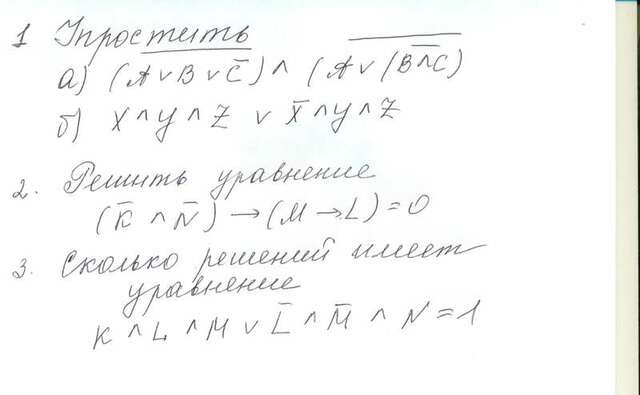 1 Упростить
а) (A ∨ B ∨ C̄) ∧ (A ∨ (B̄ ∧ C)
б) X ∧ Y ∧ Z ∨ X̄ ∧ Y ∧ Z
2. Решить уравнение
(K̄ ∧ N̄) → (M → L) = 0
3. Сколько решений имеет
уравнение
K ∧ L ∧ M ∨ L̄ ∧ M̄ ∧ N = 1